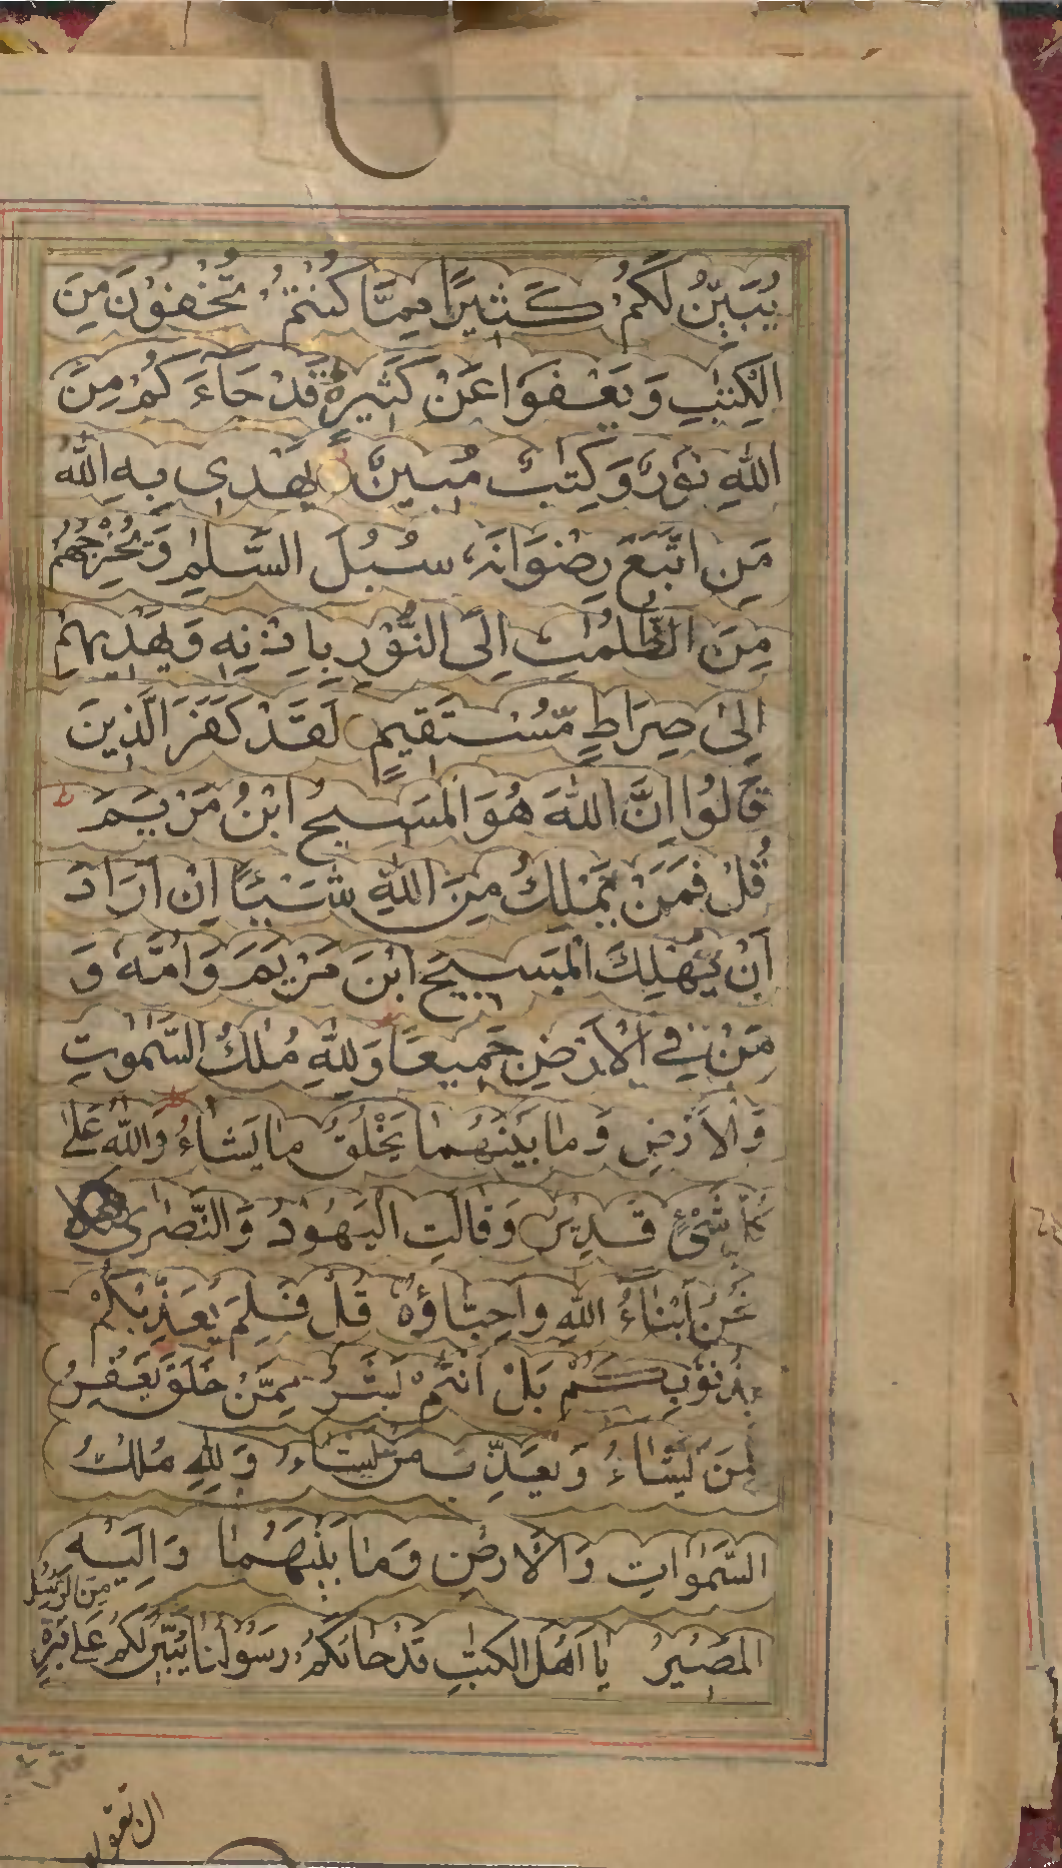 يُبَيِّنُ لَكُمْ كَثِيرًا مِمَّا كُنْتُمْ تُخْفُوْنَ مِنَ
الْكِتٰبِ وَيَعْفُوَا عَنْ كَثِيْرٍ قَدْ جَآءَكُمْ مِنَ
اللّٰهِ نُوْرٌ وَكِتٰبٌ مُبِينٌ يَهْدِى بِهِ اللّٰه
مَنِ اتَّبَعَ رِضْوَانَهٗ سُبُلَ السَّلٰمِ وَيُخْرِجُهُمْ
مِنَ الظُّلُمٰتِ اِلَى النُّوْرِ بِاِذْنِهٖ وَيَهْدِيهِمْ
اِلىٰ صِرَاطٍ مُّسْتَقِيمٍ لَقَدْ كَفَرَ الَّذِينَ
قَالُوا اِنَّ اللّٰهَ هُوَ الْمَسِيحُ ابْنُ مَرْيَمَ
قُلْ فَمَنْ يَمْلِكُ مِنَ اللّٰهِ شَيْئًا اِنْ اَرَادَ
اَنْ يُهْلِكَ الْمَسِيحَ ابْنَ مَرْيَمَ وَاُمَّهٗ وَ
مَنْ فِي الْاَرْضِ جَمِيعًا وَلِلّٰهِ مُلْكُ السَّمٰوٰتِ
وَالْاَرْضِ وَمَا بَيْنَهُمَا يَخْلُقُ مَا يَشَاءُ وَاللّٰهُ عَلىٰ
كُلِّ شَىْءٍ قَدِيْرٌ وَقَالَتِ الْيَهُوْدُ وَالنَّصٰرىٰ
نَحْنُ اَبْنَاءُ اللّٰهِ وَاَحِبَّاؤُهٗ قُلْ فَلِمَ يُعَذِّبُكُمْ
بِذُنُوْبِكُمْ بَلْ اَنْتُمْ بَشَرٌ مِمَّنْ خَلَقَ يَغْفِرُ
لِمَنْ يَشَاءُ وَيُعَذِّبُ مَنْ يَشَاءُ وَلِلّٰهِ مُلْكُ
السَّمٰوَاتِ وَالْاَرْضِ وَمَا بَيْنَهُمَا وَاِلَيْهِ
الْمَصِيْرُ يَا اَهْلَ الْكِتٰبِ قَدْ جَائَكُمْ رَسُوْلُنَا يُبَيِّنُ لَكُمْ عَلىٰ فَتْرَةٍ
مِنَ الرُّسُلِ
ان تقولو